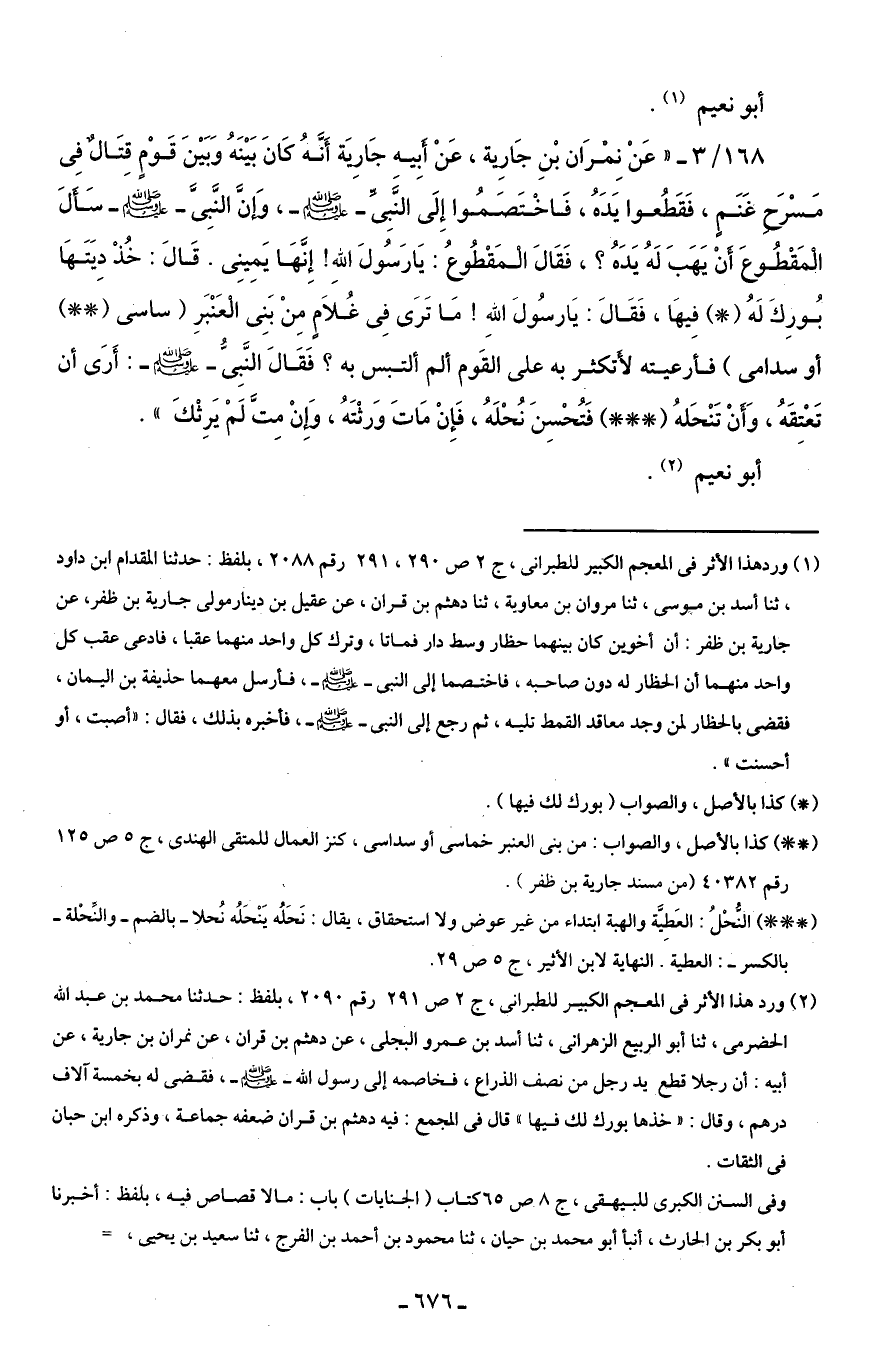 أبو نعيم (١) .
٣/١٦٨ ـ « عَنْ نِمْرَان بْنِ جَارية ، عَنْ أَبيه جَاريَة أَنَّهُ كَانَ بَيْنَهُ وَبَيْنَ قَوْمٍ قِتَالٌ فِى
مَسْرَحِ غَنَمٍ ، فَقَطَعوا يَدَهُ ، فَاخْتَصَمُوا إِلَى النَّبِىِّ ـ ﷺ ـ ، وَإِنَّ النَّبِىَّ ـ ﷺ ـ سَأَلَ
الْمَقْطُوعَ أَنْ يَهَبَ لَهُ يَدَهُ ؟ ، فَقَالَ الْمَقْطُوعُ : يَارَسُولَ اللهِ! إِنَّهَا يَمِينِى . قَالَ : خُذْ دِيَتَهَا
بُورِكَ لَهُ (*) فِيهَا ، فَقَالَ : يَارسُولَ اللهِ ! مَا تَرَى فِى غُلَامٍ مِنْ بَنِى الْعَنْبَرِ ( ساسى (**)
أو سدامى ) فأرعيته لأَتكثر به على القَوم ألم ألتبس به ؟ فَقَالَ النَّبِىُّ ـ ﷺ ـ : أَرَى أن
تَعْتِقَهُ ، وَأَنْ تَنْحَلَهُ (***) فَتُحْسِنَ نُحْلَهُ ، فَإِنْ مَاتَ وَرِثْتَهُ ، وَإِنْ مِتَّ لَمْ يَرِثْكَ » .
أبو نعيم (٢) .
(١) وردهذا الأثر فى المعجم الكبير للطبرانى ، ج ٢ ص ٢٩٠ ، ٢٩١ رقم ٢٠٨٨ ، بلفظ : حدثنا المقدام ابن داود
، ثنا أسد بن موسى ، ثنا مروان بن معاوية ، ثنا دهثم بن قران ، عن عقيل بن دينارمولى جارية بن ظفر، عن
جارية بن ظفر : أن أخوين كان بينهما حظار وسط دار فماتا ، وترك كل واحد منهما عقبا ، فادعى عقب كل
واحد منهما أن الحظار له دون صاحبه ، فاختصما إلى النبى ـ ﷺ ـ ، فأرسل معهما حذيفة بن اليمان ،
فقضى بالحظار لمن وجد معاقد القمط تليه ، ثم رجع إلى النبى ـ ﷺ ـ ، فأخبره بذلك ، فقال : «أصبت ، أو
أحسنت » .
(*) كذا بالأصل ، والصواب ( بورك لك فيها ) .
(**) كذا بالأصل ، والصواب : من بنى العنبر خماسى أو سداسى ، كنز العمال للمتقى الهندى ، ج ٥ ص ١٢٥
رقم ٤٠٣٨٢ (من مسند جارية بن ظفر ) .
(***) النُّحْلُ : العَطِيَّة والهبة ابتداء من غير عوض ولا استحقاق ، يقال : نَحَلَه يَنْحَلُه نُحلا ـ بالضم ـ والنِّحْلة ـ
بالكسر ـ : العطية . النهاية لابن الأثير ، ج ٥ ص ٢٩.
(٢) ورد هذا الأثر فى المعجم الكبير للطبرانى ، ج ٢ ص ٢٩١ رقم ٢٠٩٠ ، بلفظ : حدثنا محمد بن عبد الله
الحضرمى ، ثنا أبو الربيع الزهرانى ، ثنا أسد بن عمرو البجلى ، عن دهثم بن قران ، عن نمران بن جارية ، عن
أبيه : أن رجلا قطع يد رجل من نصف الذراع ، فخاصمه إلى رسول الله ـ ﷺ ـ ، فقضى له بخمسة آلاف
درهم ، وقال : « خذها بورك لك فيها » قال فى المجمع : فيه دهثم بن قران ضعفه جماعة ، وذكره ابن حبان
فى الثقات .
وفى السنن الكبرى للبيهقى ، ج ٨ ص ٦٥كتاب ( الجنايات ) باب : مالا قصاص فيه ، بلفظ : أخبرنا
أبو بكر بن الحارث ، أنبأ أبو محمد بن حيان ، ثنا محمود بن أحمد بن الفرج ، ثنا سعيد بن يحيى ، =
ـ ٦٧٦ ـ